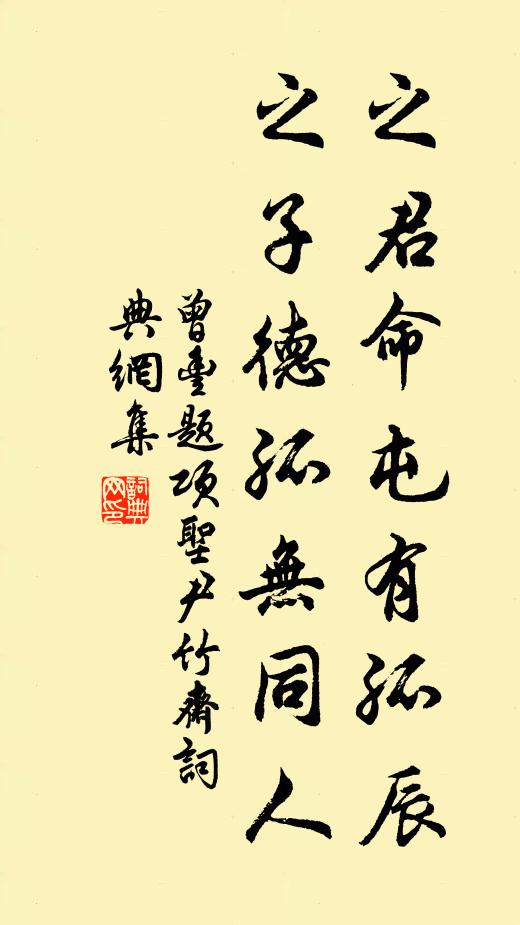 之君命屯有孤辰
之子德孤無同人
曾豐題項聖尹竹齋詞
典網集
詞典网印